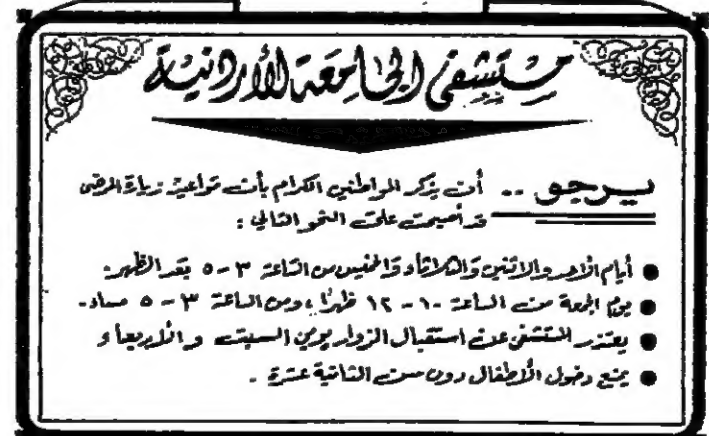 مستشفى الجامعة الأردنية
يرجو .. أن يذكر المواطنين الكرام بأن مواعيد زيارة المرضى
قد أصبحت على النحو التالي :
● أيام الأحد والاثنين والثلاثاء والخميس من الساعة ٣ - ٥ بعد الظهر.
● يوم الجمعة من الساعة ١٠ - ١٢ ظهرًا ، ومن الساعة ٣ - ٥ مساء.
● يعتذر المستشفى عن استقبال الزوار يومي السبت والأربعاء
● يمنع دخول الأطفال دون سن الثانية عشرة .